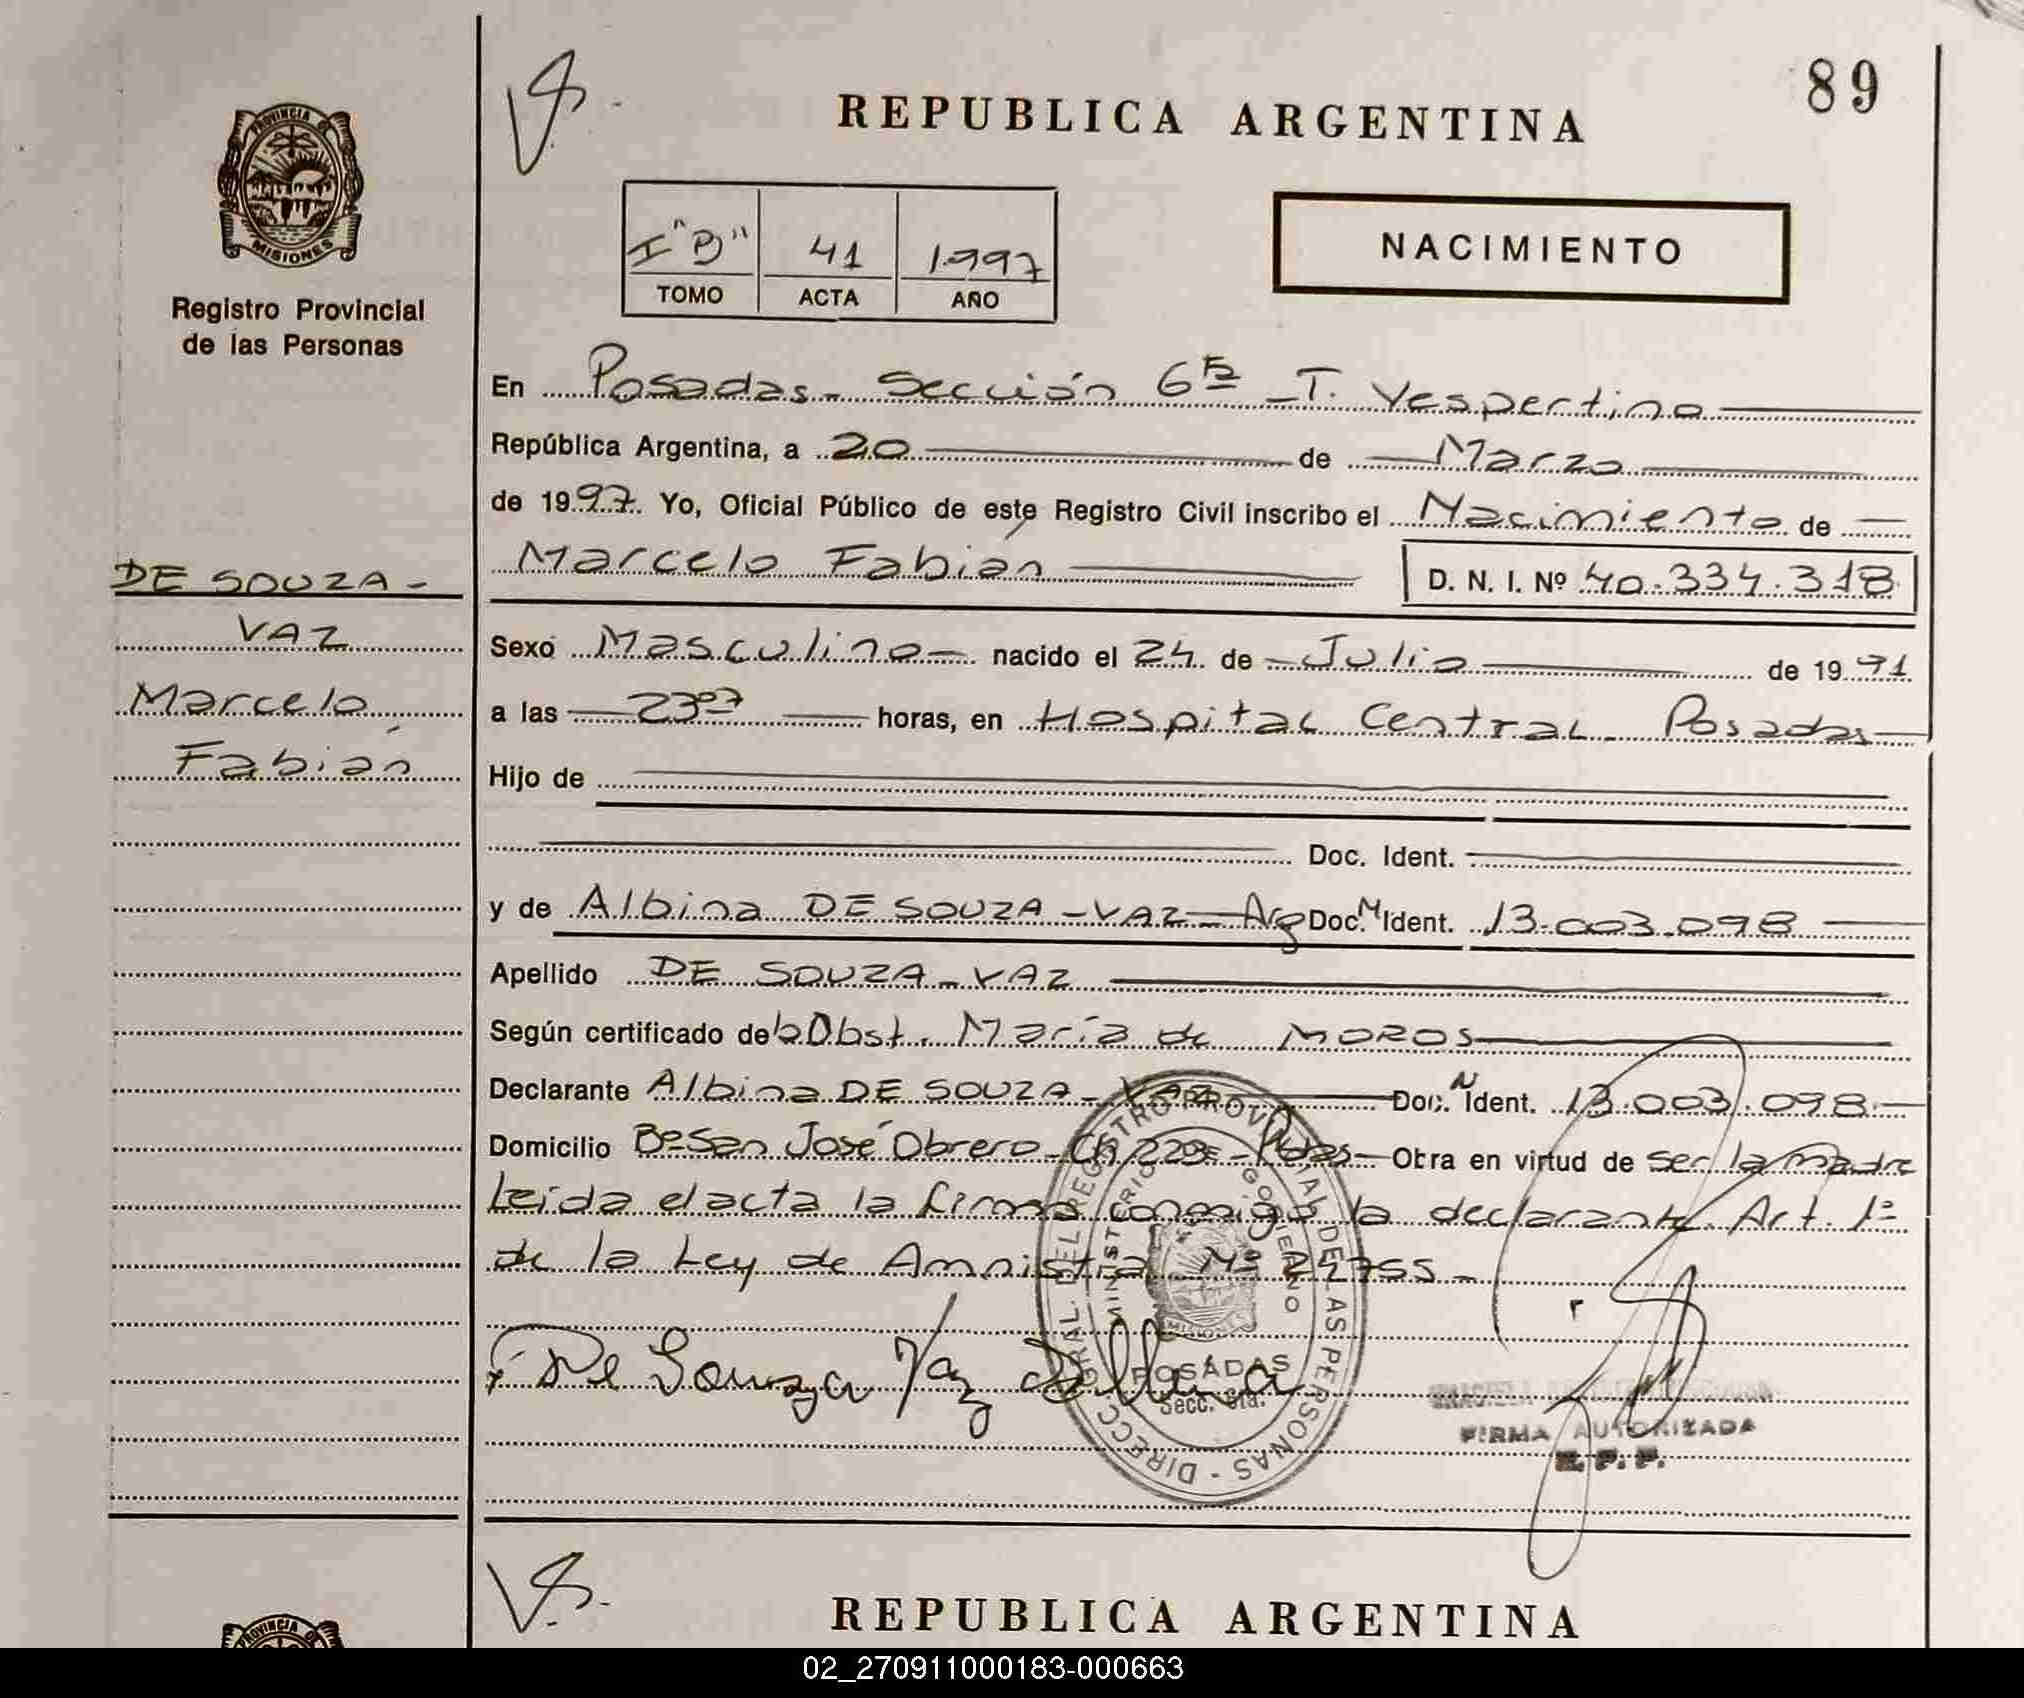 89
V.
REPUBLICA ARGENTINA
PROVINCIA DE
MISIONES
Registro Provincial
de las Personas
I "B" 41 1997
TOMO ACTA AÑO
NACIMIENTO
En Posadas - Sección 6ta - T. Vespertino
República Argentina, a 20 de Marzo
de 1997. Yo, Oficial Público de este Registro Civil inscribo el Nacimiento de
Marcelo Fabián D. N. I. Nº 40.334.318
DE SOUZA -
VAZ
Marcelo
Fabián
Sexo Masculino nacido el 24 de Julio de 1991
a las 23 07 horas, en Hospital Central - Posadas
Hijo de
Doc. Ident.
y de Albina DE SOUZA - VAZ - Arg Doc. Ident. 13.003.098
Apellido DE SOUZA - VAZ
Según certificado de la Obst. María de MOROS
Declarante Albina DE SOUZA - VAZ Doc. Ident. 13.003.098
Domicilio Bº San José Obrero - Ch 223 - Pdas - Obra en virtud de ser la madre
Leida el acta la firma conmigo la declarante. Art. 1º
de la Ley de Amnistia Nº 24755 -
De Souza Vaz Albina
DIRECC. GRAL. DEL REGISTRO PROVINCIAL DE LAS PERSONAS
MINISTERIO DE GOBIERNO
MISIONES
POSADAS
Secc. 6ta.
FIRMA AUTORIZADA
R. P. P.
V.
REPUBLICA ARGENTINA
PROVINCIA DE
02_270911000183-000663